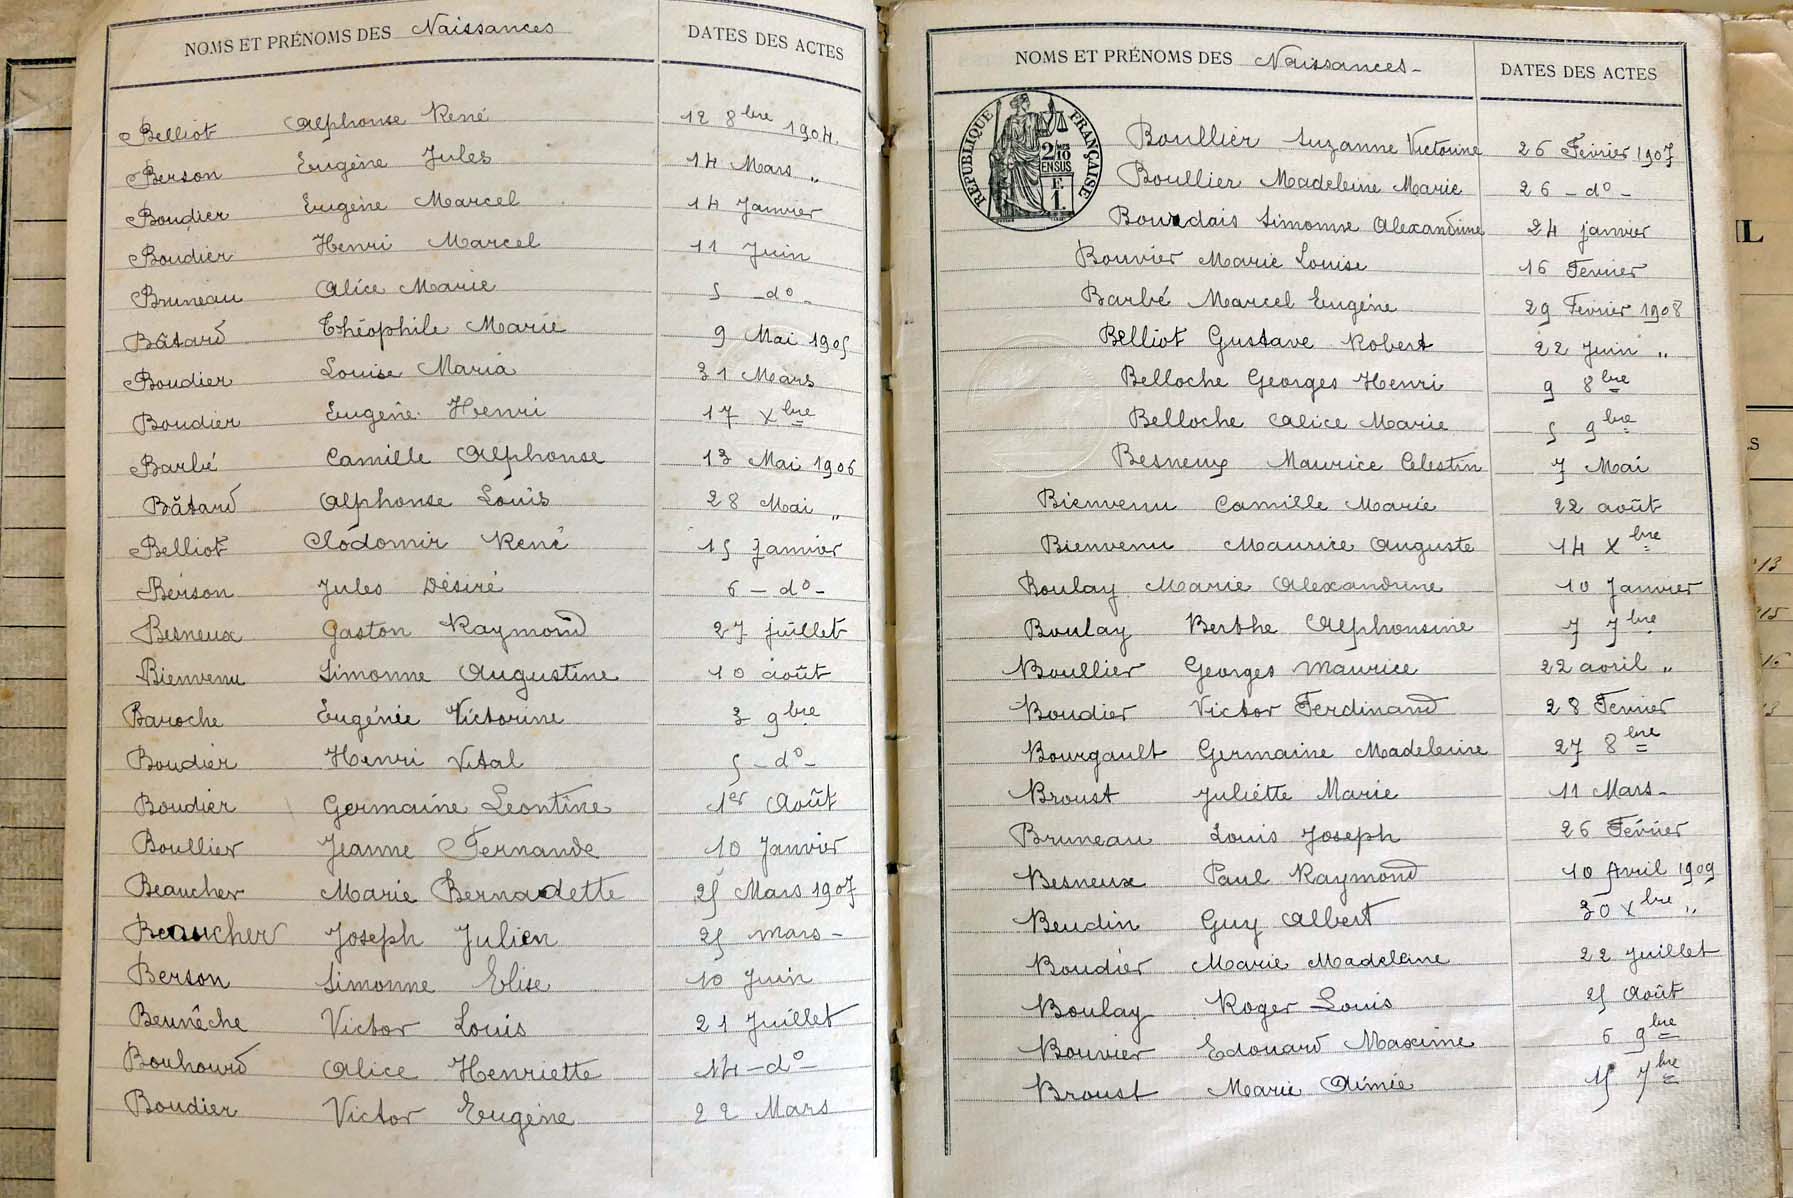 NOMS ET PRÉNOMS DES Naissances DATES DES ACTES
Belliot Alphonse René 12 8bre 1904.
Berson Eugène Jules 14 Mars "
Boudier Eugène Marcel 14 Janvier
Boudier Henri Marcel 11 Juin
Bruneau Alice Marie 5 - do -
Bâtard Théophile Marie 9 Mai 1905
Boudier Louise Maria 31 Mars
Boudier Eugène Henri 17 Xbre
Barbé Camille Alphonse 13 Mai 1906
Bâtard Alphonse Louis 28 Mai "
Belliot Clodomir René 15 Janvier
Berson Jules Désiré 6 - do -
Besneux Gaston Raymond 27 juillet
Bienvenu Simonne Augustine 10 août
Baroche Eugénie Victorine 3 9bre
Boudier Henri Vital 5 - do -
Boudier Germaine Leontine 1er Août
Boullier Jeanne Fernande 10 Janvier
Beaucher Marie Bernadette 25 Mars 1907
Beaucher Joseph Julien 25 mars -
Berson Simonne Elise 10 Juin
Beunêche Victor Louis 21 Juillet
Bouhourd Alice Henriette 14 - do -
Boudier Victor Eugène 22 Mars
NOMS ET PRÉNOMS DES Naissances - DATES DES ACTES
RÉPUBLIQUE FRANÇAISE
2/10
EN SUS
E
1.
Boullier Suzanne Victorine 26 Fevrier 1907
Boullier Madeleine Marie 26 - do -
Bourdais Simonne Alexandrine 24 janvier
Bouvier Marie Louise 16 Fevrier
Barbé Marcel Eugène 29 Fevrier 1908
Belliot Gustave Robert 22 Juin "
Belloche Georges Henri 9 8bre
Belloche Alice Marie 5 9bre
Besneux Maurice Celestin 7 Mai
Bienvenu Camille Marie 22 août
Bienvenu Maurice Auguste 14 Xbre
Boulay Marie Alexandrine 10 Janvier
Boulay Berthe Alphonsine 7 7bre
Boullier Georges Maurice 22 avril "
Boudier Victor Ferdinand 28 Fevrier
Bourgault Germaine Madeleine 27 8bre
Broust Juliette Marie 11 Mars -
Bruneau Louis Joseph 26 Fevrier
Besneux Paul Raymond 10 Avril 1909
Beudin Guy Albert 30 Xbre "
Boudier Marie Madeleine 22 Juillet
Boulay Roger Louis 25 Août
Bouvier Edouard Maxime 6 9bre
Broust Marie Aimée 15 7bre